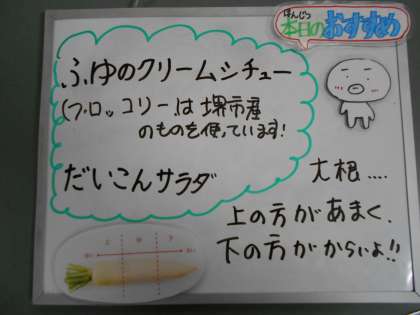 ほんじつ
本日のおすすめ
ふゆのクリームシチュー
(ブロッコリーは堺市産
のものを使っています!
だいこんサラダ
大根....
上の方があまく、
下の方がからいよ!!
上 中 下